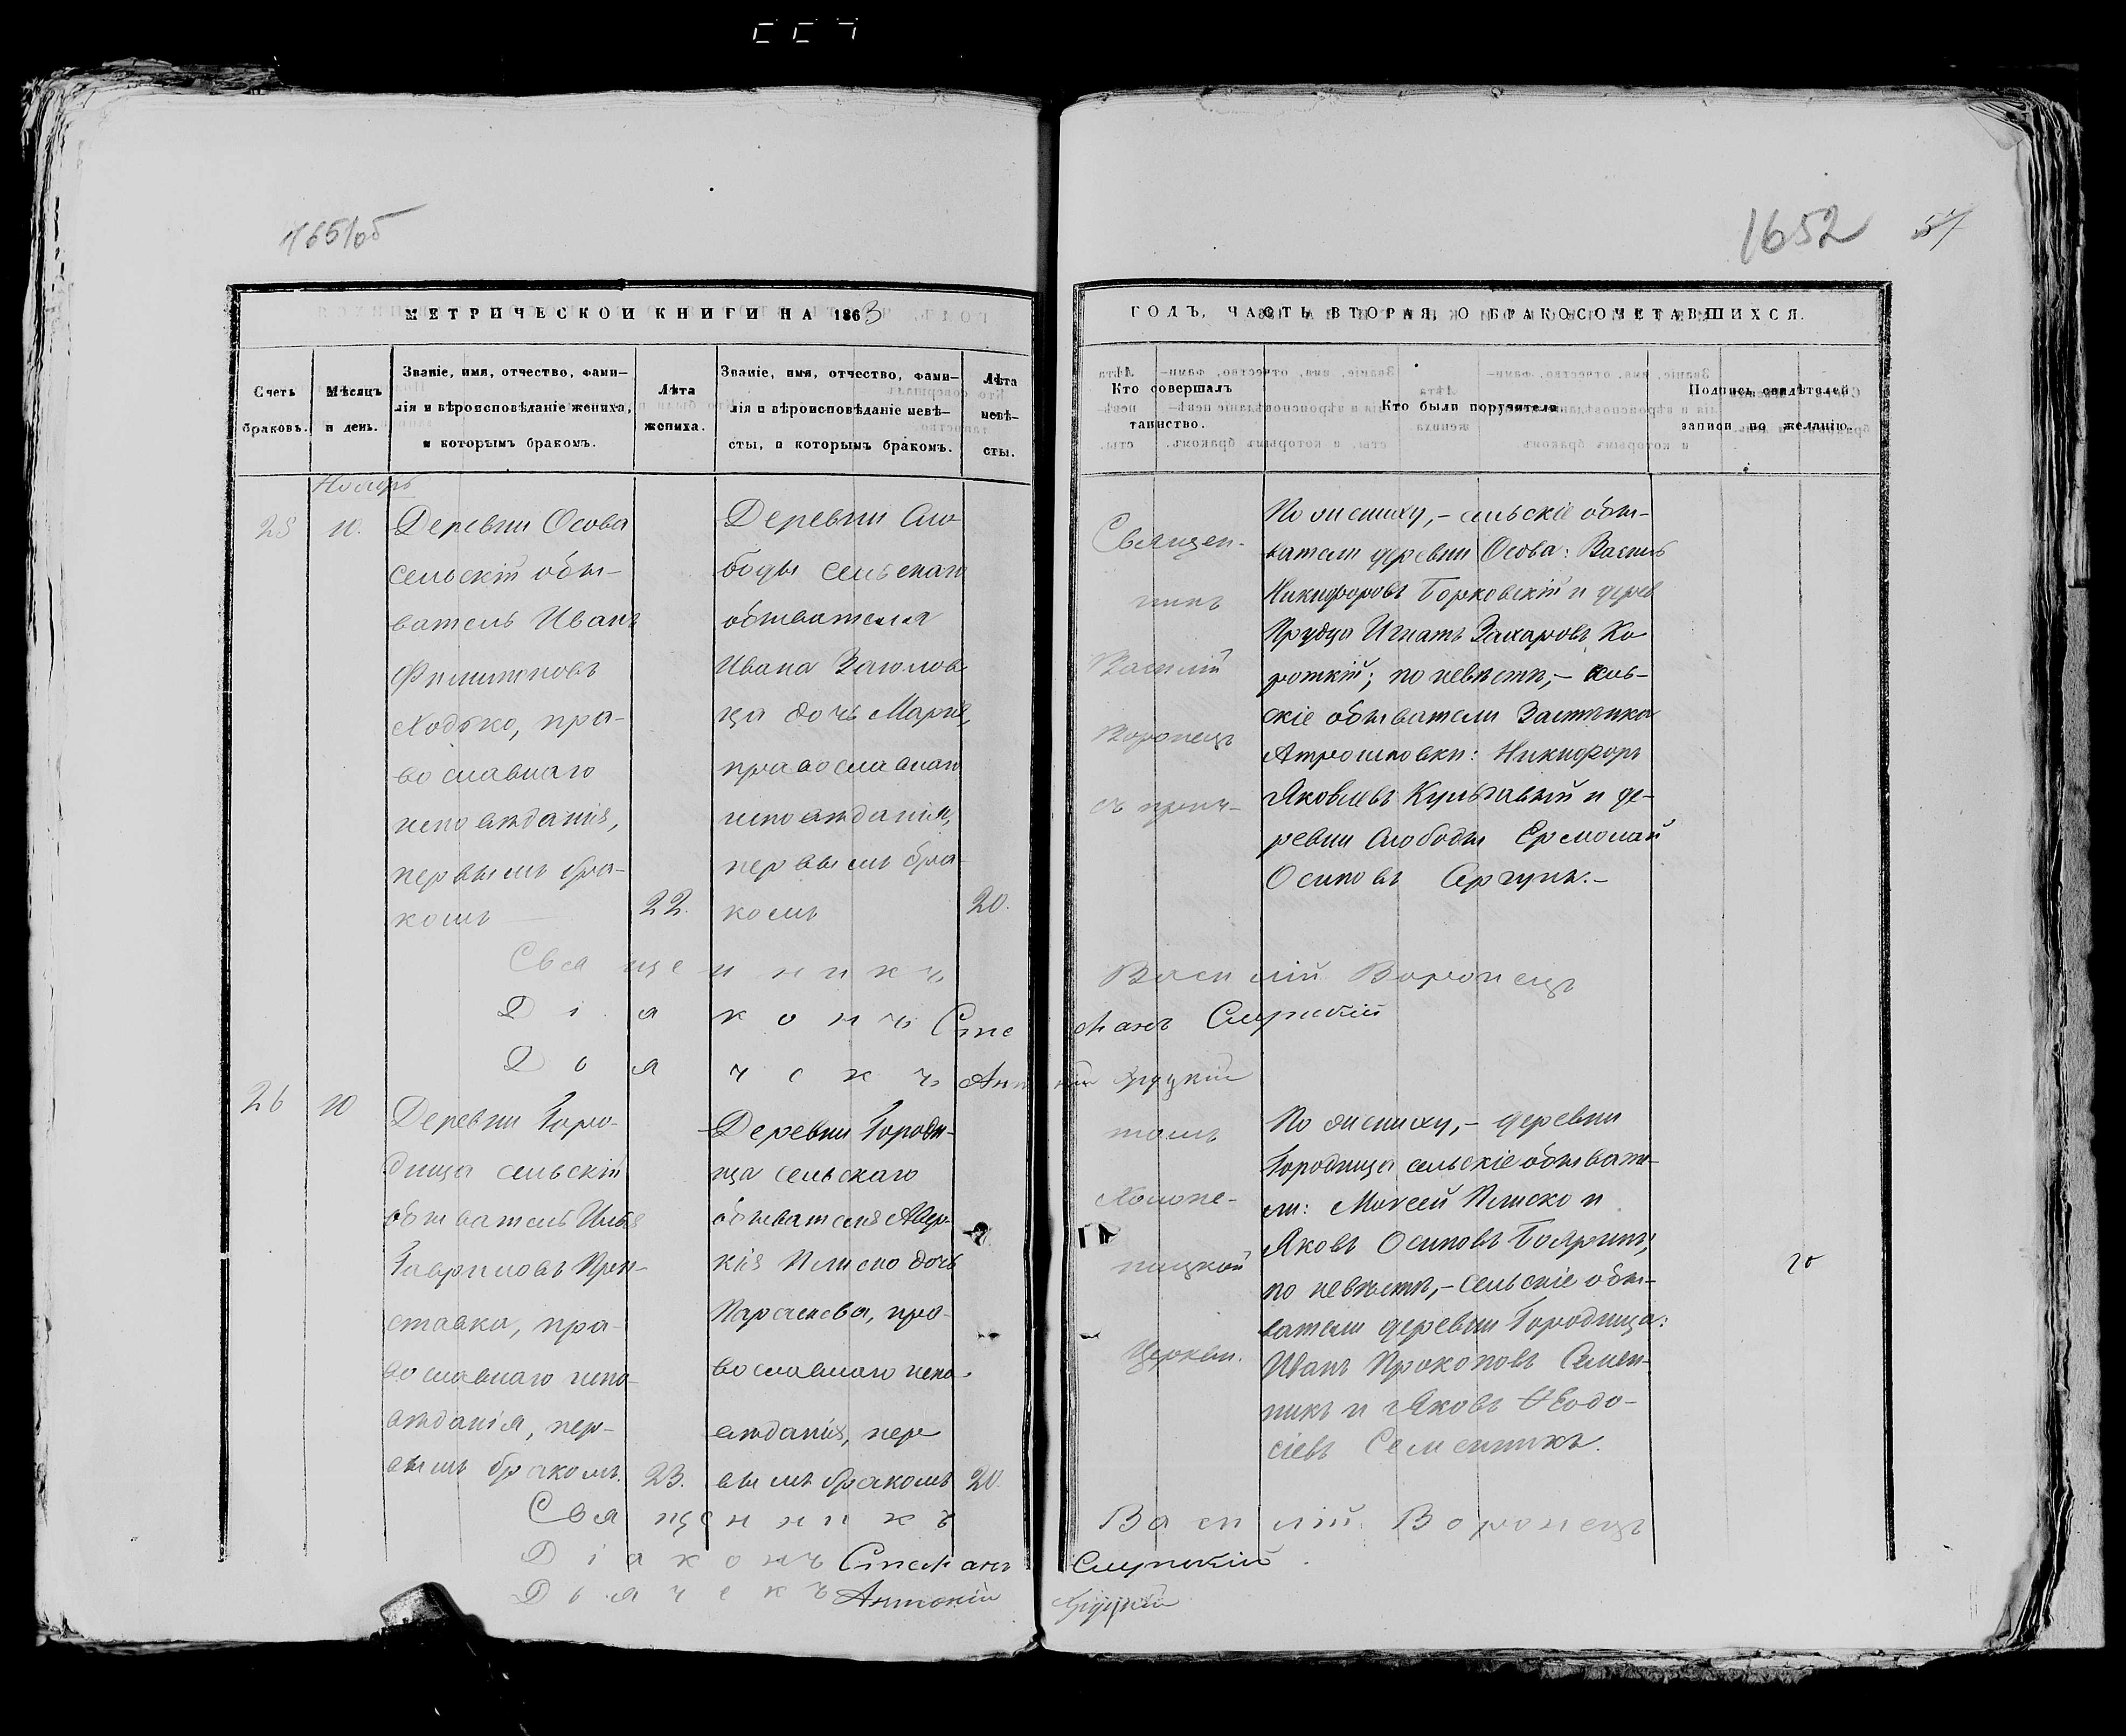 1651об
1652
57
МЕТРИЧЕСКОЙ КНИГИ НА 1863
ГОДЪ, ЧАСТЬ ВТОРАЯ, О БРАКОСОЧЕТАВШИХСЯ.
Счетъ
браковъ.
Мѣсяцъ
и день.
Званіе, имя, отчество, фами-
лія и вѣроисповѣданіе жениха,
и которымъ бракомъ.
Лѣта
жениха.
Званіе, имя, отчество, фами-
лія и вѣроисповѣданіе невѣ-
сты, и которымъ бракомъ.
Лѣта
невѣ-
сты.
Кто совершалъ
таинство.
Кто были поручители.
Подпись свидѣтелей
записи по желанію.
Ноябрь
25
10.
Деревни Осова
сельскій обы-
ватель Иванъ
Филиповъ
Ходько, пра-
вославнаго
исповѣданія,
первымъ бра-
комъ
22.
Деревни Сло-
боды сельскаго
обывателя
Ивана
дочь Марія,
православнаго
исповѣданія,
первымъ бра-
комъ
20.
Священ-
никъ
Василій
Воронецъ
съ прич-
По жениху,- сельскіе обы-
ватели деревни Осова: Василь
Никифоровъ Борковскій и дерев
Прудца Игнатъ Захаровъ Ко
роткій; по невѣстѣ,- сель-
скіе обыватели Застѣнка
Никифоръ
Яковлевъ Кульгавый и де-
ревни Слободы Ермолай
Осиповъ
Священникъ Василій Воронецъ
Діаконъ Стефанъ
Дьячекъ Антоній
26
10
Деревни Горо-
дища сельскій
обыватель Илья
Гавриловъ При-
ставка, пра-
вославнаго испо-
вѣданія, пер-
вымъ бракомъ.
23.
Деревни Городи-
ща сельскаго
обывателя Авер-
кія Плиско дочь
Параскева, пра-
вославнаго испо-
вѣданія, пер
вымъ бракомъ
20.
томъ
Холопе-
ницкой
Церкви.
По жениху,- деревни
Городища сельскіе обывате-
ли: Моисей Плиско и
Яковъ Осиповъ Бояринъ,
по невѣстѣ,- сельскіе обы-
ватели деревни Городища:
Иванъ Прокоповъ Семен-
никъ и Яковъ Ѳеодо-
сіевъ Семенникъ.
Священникъ Василій Воронецъ
Діаконъ Стефанъ
Дьячекъ Антоній